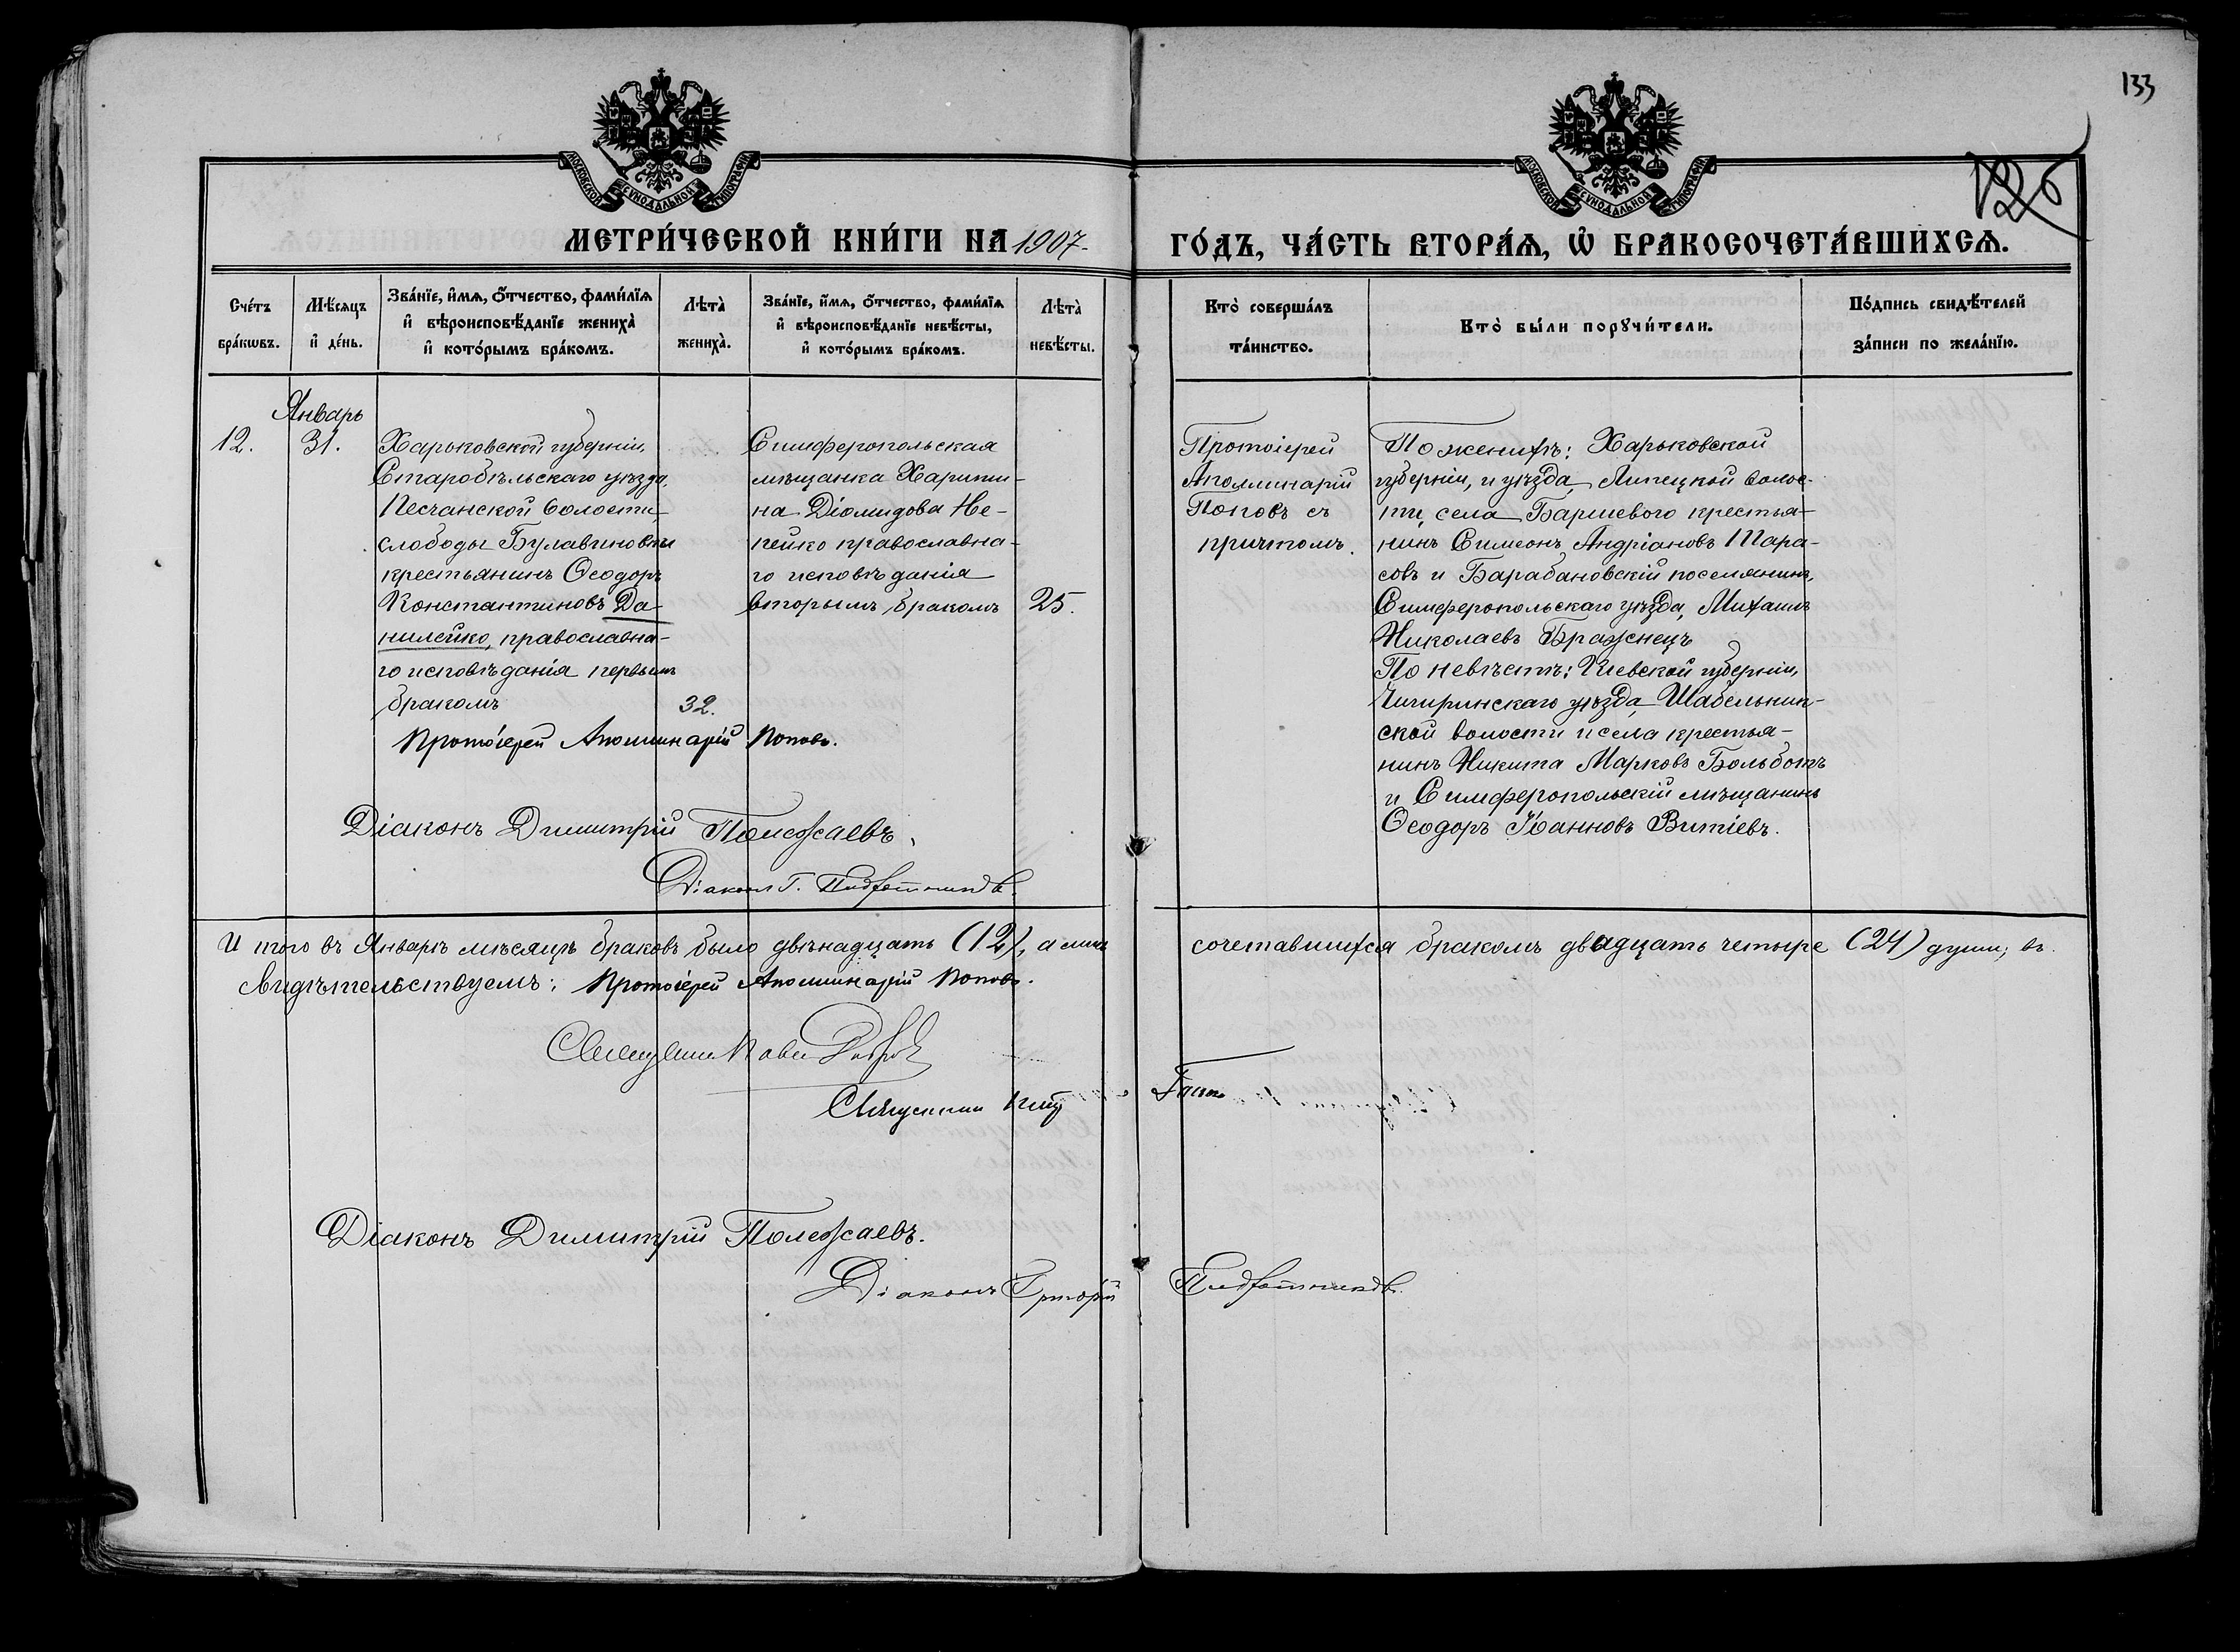 133
126
МОСКОВСКОЙ СѴНОДАЛЬНОЙ ТИПОГРАФІИ
МОСКОВСКОЙ СѴНОДАЛЬНОЙ ТИПОГРАФІИ
МЕТРИ́ЧЕСКОЙ КНИ́ГИ НА 1907 ГО́ДЪ, ЧА́СТЬ ВТОРА́Ѧ, Ѡ҆ БРАКОСОЧЕТА́ВШИХСѦ.
Сче́тъ бра́кѡвъ.
Мѣ́сяцъ и҆ де́нь.
Зва́нїе, и҆́мѧ, ѻ҆́тчество, фами́лїѧ и҆ вѣроисповѣ́данїе жениха̀ и҆ кото́рымъ бра́комъ.
Лѣта̀ жениха̀.
Зва́нїе, и҆́мѧ, ѻ҆́тчество, фами́лїѧ и҆ вѣроисповѣ́данїе невѣ́сты, и҆ кото́рымъ бра́комъ.
Лѣта̀ невѣ́сты.
Кто̀ соверша́лъ та́инство.
Кто̀ бы́ли порꙋчи́тели.
По́дпись свидѣ́телей за́писи по жела́нїю.
Январь
12.
31.
Харьковской губерніи,
Старобѣльскаго уѣзда,
Песчанской волости,
слободы Булавиновки
крестьянинъ Ѳеодоръ
Константиновъ Да-
нилейко, православна-
го исповѣданія первымъ
бракомъ
32.
Симферопольская
мѣщанка Харити-
на Діомидова Не-
пейко православна-
го исповѣданія
вторымъ бракомъ
25.
Протоіерей
Аполлинарій
Поповъ съ
причтомъ.
По женихѣ: Харьковской
губерніи, и уѣзда, Липецкой волос-
ти, села Баршевого крестья-
нинъ Симеонъ Андріановъ Тара-
совъ и Барабановскій поселянинъ,
Симферопольскаго уѣзда, Михаилъ
Николаевъ Бражнецъ
По невѣстѣ: Кіевской губерніи,
Чигиринскаго уѣзда Шабельник-
ской волости и села крестья-
нинъ Никита Марковъ Больботъ
и Симферопольскій мѣщанинъ
Ѳеодоръ Іоанновъ Витіевъ.
Протоіерей Аполлинарій Поповъ.
Діаконъ Димитрій Полежаевъ.
Діаконъ Г.
И того въ Январѣ мѣсяцѣ браковъ было двѣнадцать (12), а лицъ сочетавшихся бракомъ двадцать четыре (24) души; въ
свидѣтельствуемъ: Протоіерей Аполлинарій Поповъ.
Священникъ
Священникъ
Діаконъ Димитрій Полежаевъ.
Діаконъ Григорій